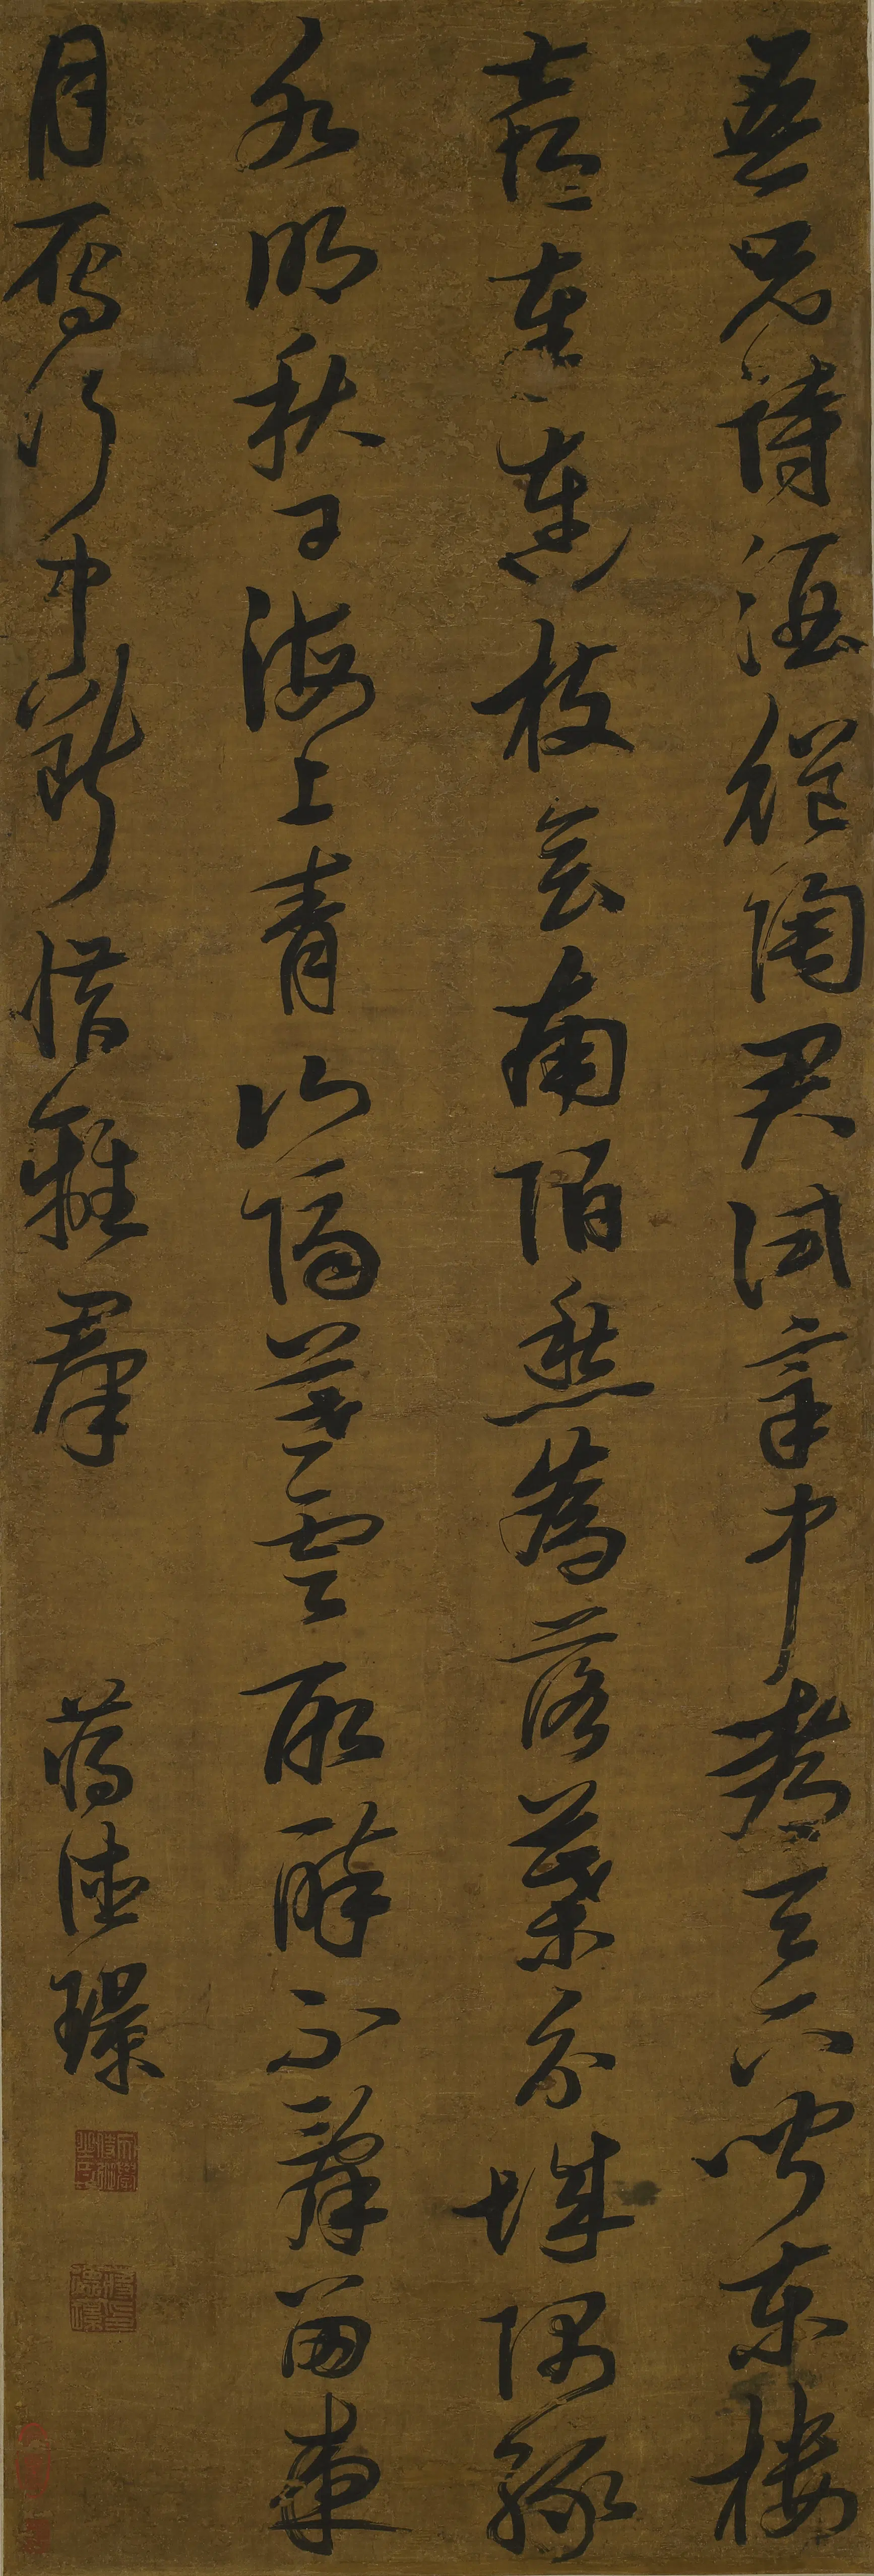 吾兄詩酒繼陶君試宰中都天下聞東樓
喜奉連枝會南陌愁為落葉分城隅綠
水明秋日海上青山隔暮雲取醉不辭留夜
月雁行中斷惜離羣
蔣德璟